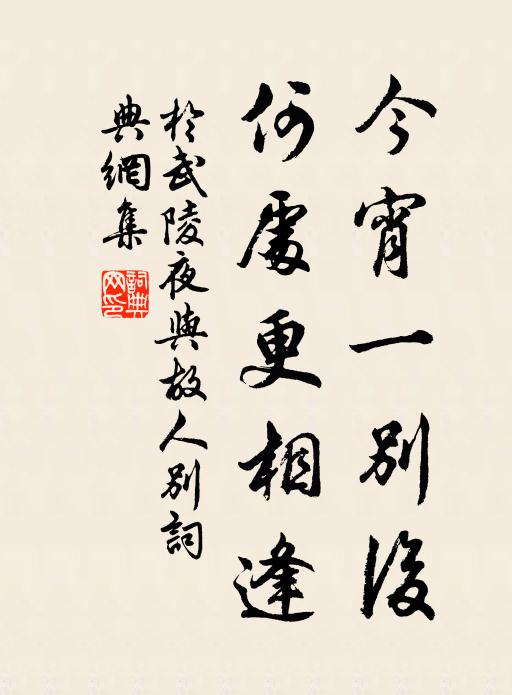 今宵一別後
何處更相逢
於武陵夜與故人別詞
典網集
詞典
網印